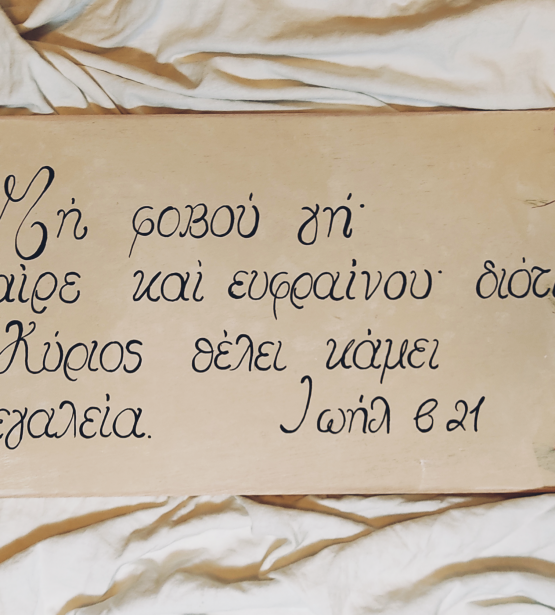 Μή φοβού γή·
αίρε καὶ ευφραίνου· διότι
Κύριος θέλει κάμει
εγαλεία. Ἰωήλ β 21